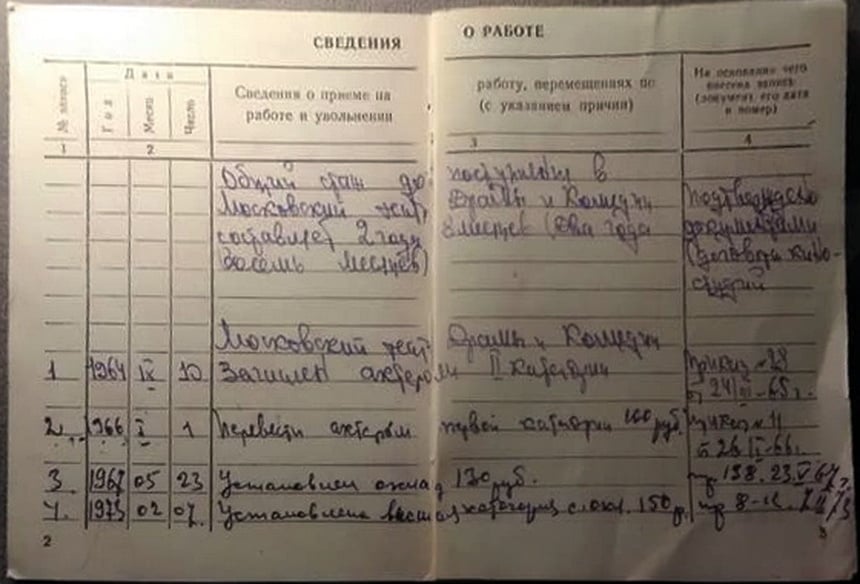 СВЕДЕНИЯ О РАБОТЕ
№ записи
Дата
Год
Месяц
Число
Сведения о приеме на
работе и увольнении
работу, перемещениях по
(с указанием причин)
На основании чего
внесена запись
(документ, его дата
и номер)
1 2 3 4
Общий стаж до поступления в
Московский театр Драмы и Комедии Подтвержден
составляет 2 года 8 месяцев (два года документами
восемь месяцев) (договоры кино-
студий
Московский театр Драмы и Комедии
1 1964 IX 10 Зачислен актером II категории Приказ № 28
2. 1966 I 1 Перевести актером первой категории 100 руб. приказ № 11
3. 1967 05 23 Установлен оклад 130 руб. пр. 138. 23.V 67 г.
4. 1973 02 07. Установлена высшая категория с окл. 150 р.
2 3